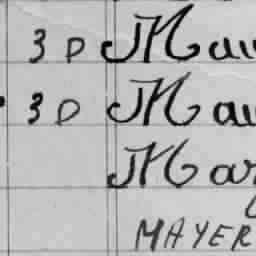 3 D Mau
3 D Mau
Mar
MAYER